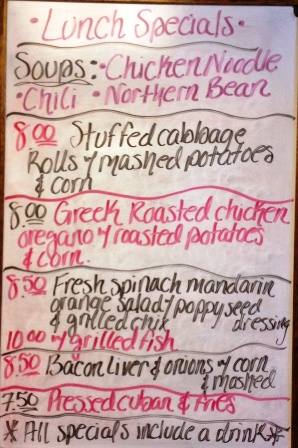 ·Lunch Specials·
Soups:·Chicken Noodle
·Chili ·Northern Bean
8.00 Stuffed cabbage
Rolls w/ mashed potatoes
& corn
8.00 Greek Roasted chicken
oregano w/ roasted potatoes
& corn.
8.50 Fresh spinach mandarin
orange salad w/ poppyseed
& grilled chix dressing
10.00 w/ grilled fish
8.50 Bacon Liver & onions w/ corn
& mashed
7.50 Pressed cuban & fries
* All specials include a drink *